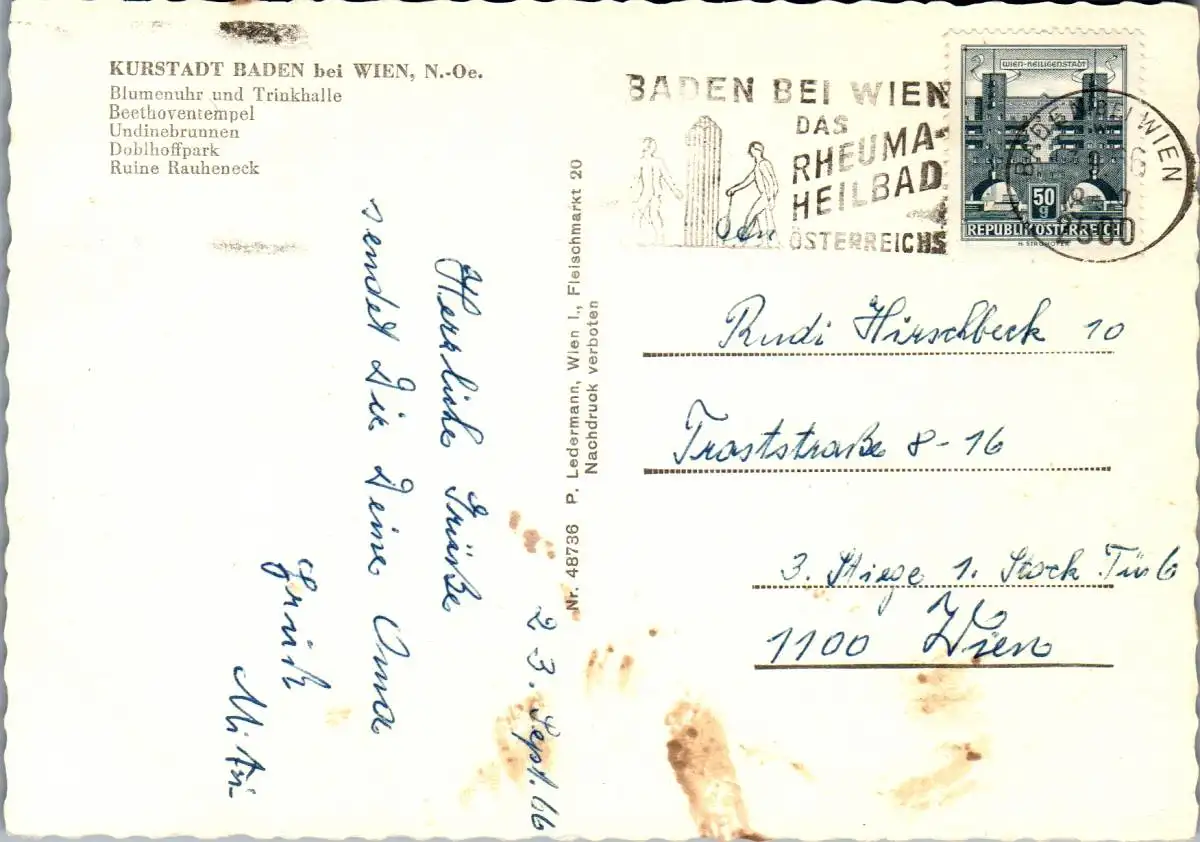 KURSTADT BADEN bei WIEN, N.-Oe.
Blumenuhr und Trinkhalle
Beethoventempel
Undinebrunnen
Doblhoffpark
Ruine Rauheneck
23. Sept. 66
Herzliche Grüße
sendet Dir Deine Oma
Gruß
Mitzi
Nr. 48736 P. Ledermann, Wien I., Fleischmarkt 20
Nachdruck verboten
BADEN BEI WIEN
DAS
RHEUMA-
HEILBAD
ÖSTERREICHS
WIEN-HEILIGENSTADT
50
g
REPUBLIK ÖSTERREICH
BADEN BEI WIEN
2500
An
Rudi Hirschbeck 10
Troststraße 8-16
3. Stiege 1. Stock Tür 6
1100 Wien